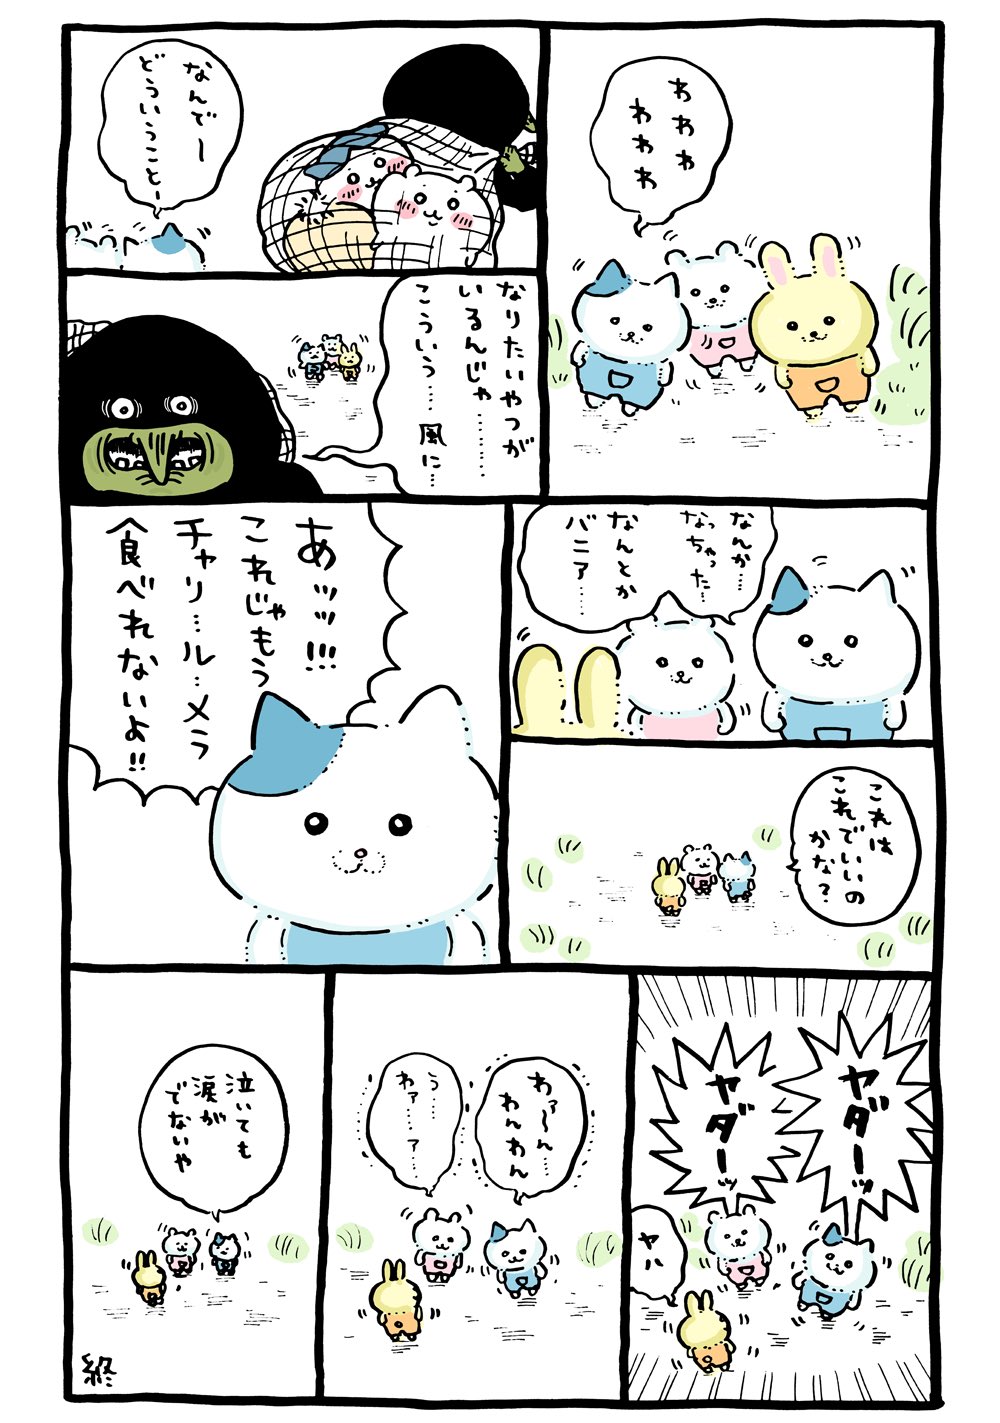 わわわ
わわわ
なんでー
どういうことー
なりたいやつが
いるんじゃ…………
こういう… 風に…
なんか…
なっちゃった…
なんとか
バニア…
あッッッ!!!
これじゃもう
チャリ…ル…メラ
食べれないよ!!
これは
これでいいの
かな?
ヤダーッ
ヤダーッ
ヤハ
わァ〜ん……
わんわん
う……
わァ…ァ…
泣いても
涙が
でないや
終